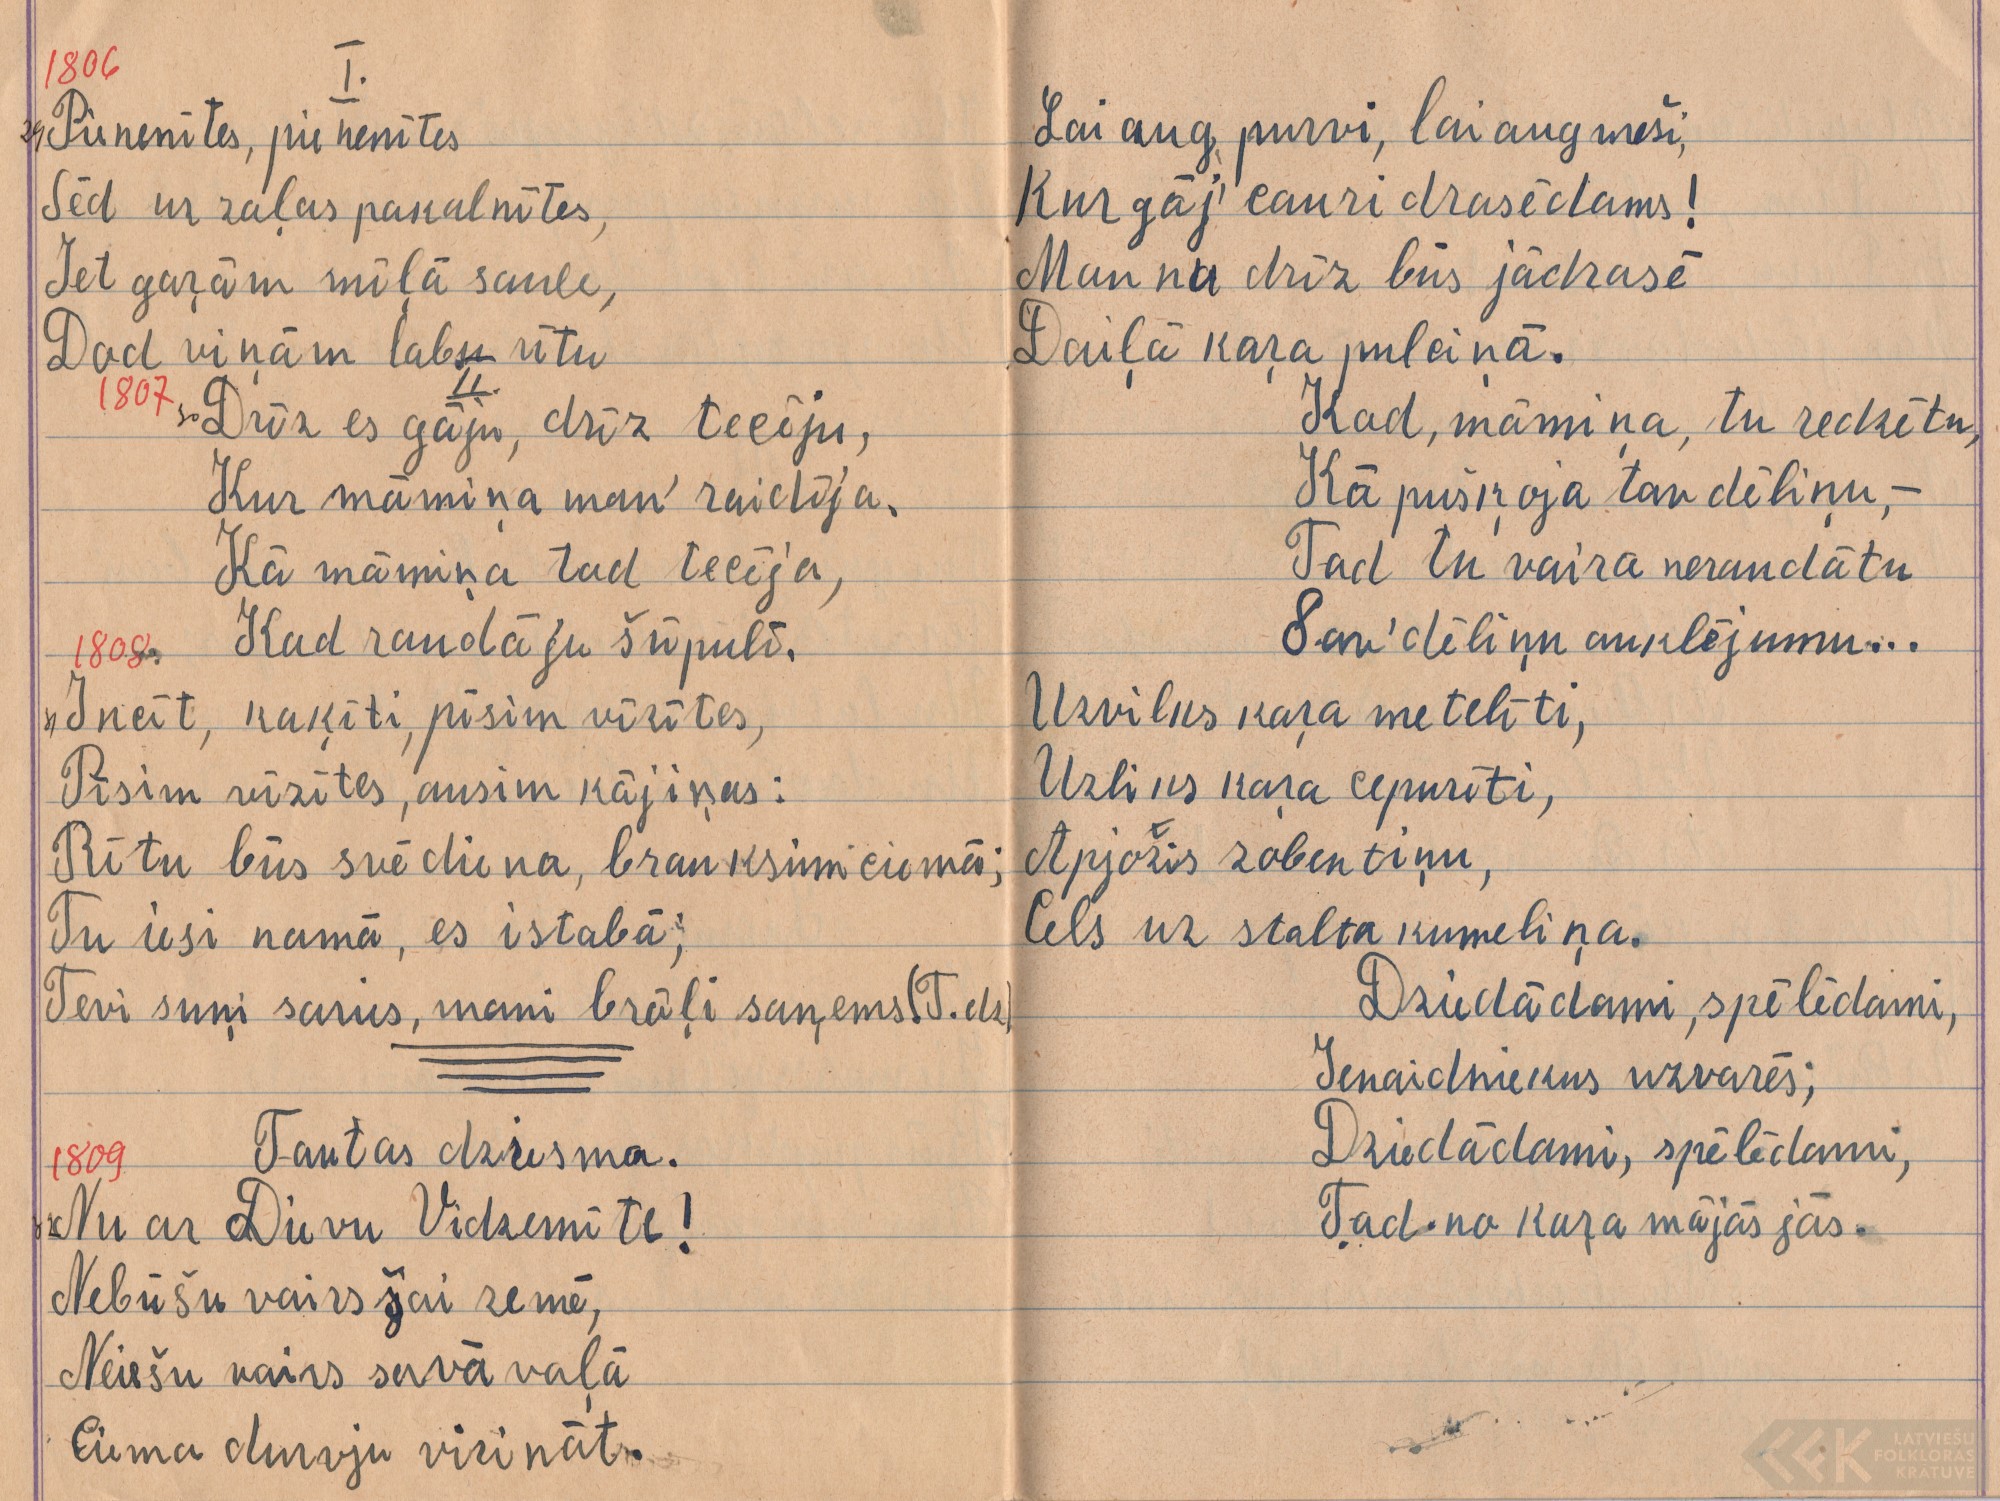 1806
I.
29) Pienenītes, pienenītes
Sēd uz zaļas pakalnītes,
Iet gaŗām mīļā saule,
Dod viņām labu rītu
II.
1807
30 Drīz es gāju, drīz tecēju,
Kur māmiņa man' raidīja.
Kā māmiņa tad tecēja,
Kad raudāju šūpulī.
1808.
31) Incīt, kaķīti, pīsim vīzītes,
Pīsim vīzītes, ausim kājiņas:
Rītu būs svēdiena, brauksim ciemā;
Tu iesi namā, es istabā;
Tevi suņi saries, mani brāļi saņems. (T.dz)
1809
Tautas dziesma.
32 Nu ar Dievu Vidzemīte!
Nebūšu vairs šai zemē,
Neiešu vairs savā vaļā
Ciema durvju virināt.
Lai aug purvi, lai aug meži,
Kur gāj' cauri drasēdams!
Man nu drīz būs jādrasē
Daiļā kaŗa pulciņā.
Kad, māmiņa, tu redzētu,
Kā puškoja tav dēliņu, –
Tad tu vaira neraudātu
Sav' dēliņu auklējumu...
Uzvilks kaŗa metelīti,
Uzliks kaŗa cepurīti,
Apjozīs zobentiņu,
Cels uz stalta kumeliņa.
Dziedādami, spēlēdami,
Ienaidniekus uzvarēs;
Dziedādami, spēlēdami,
Tad no kaŗa mājās jās.
LATVIEŠU
FOLKLORAS
KRĀTUVE